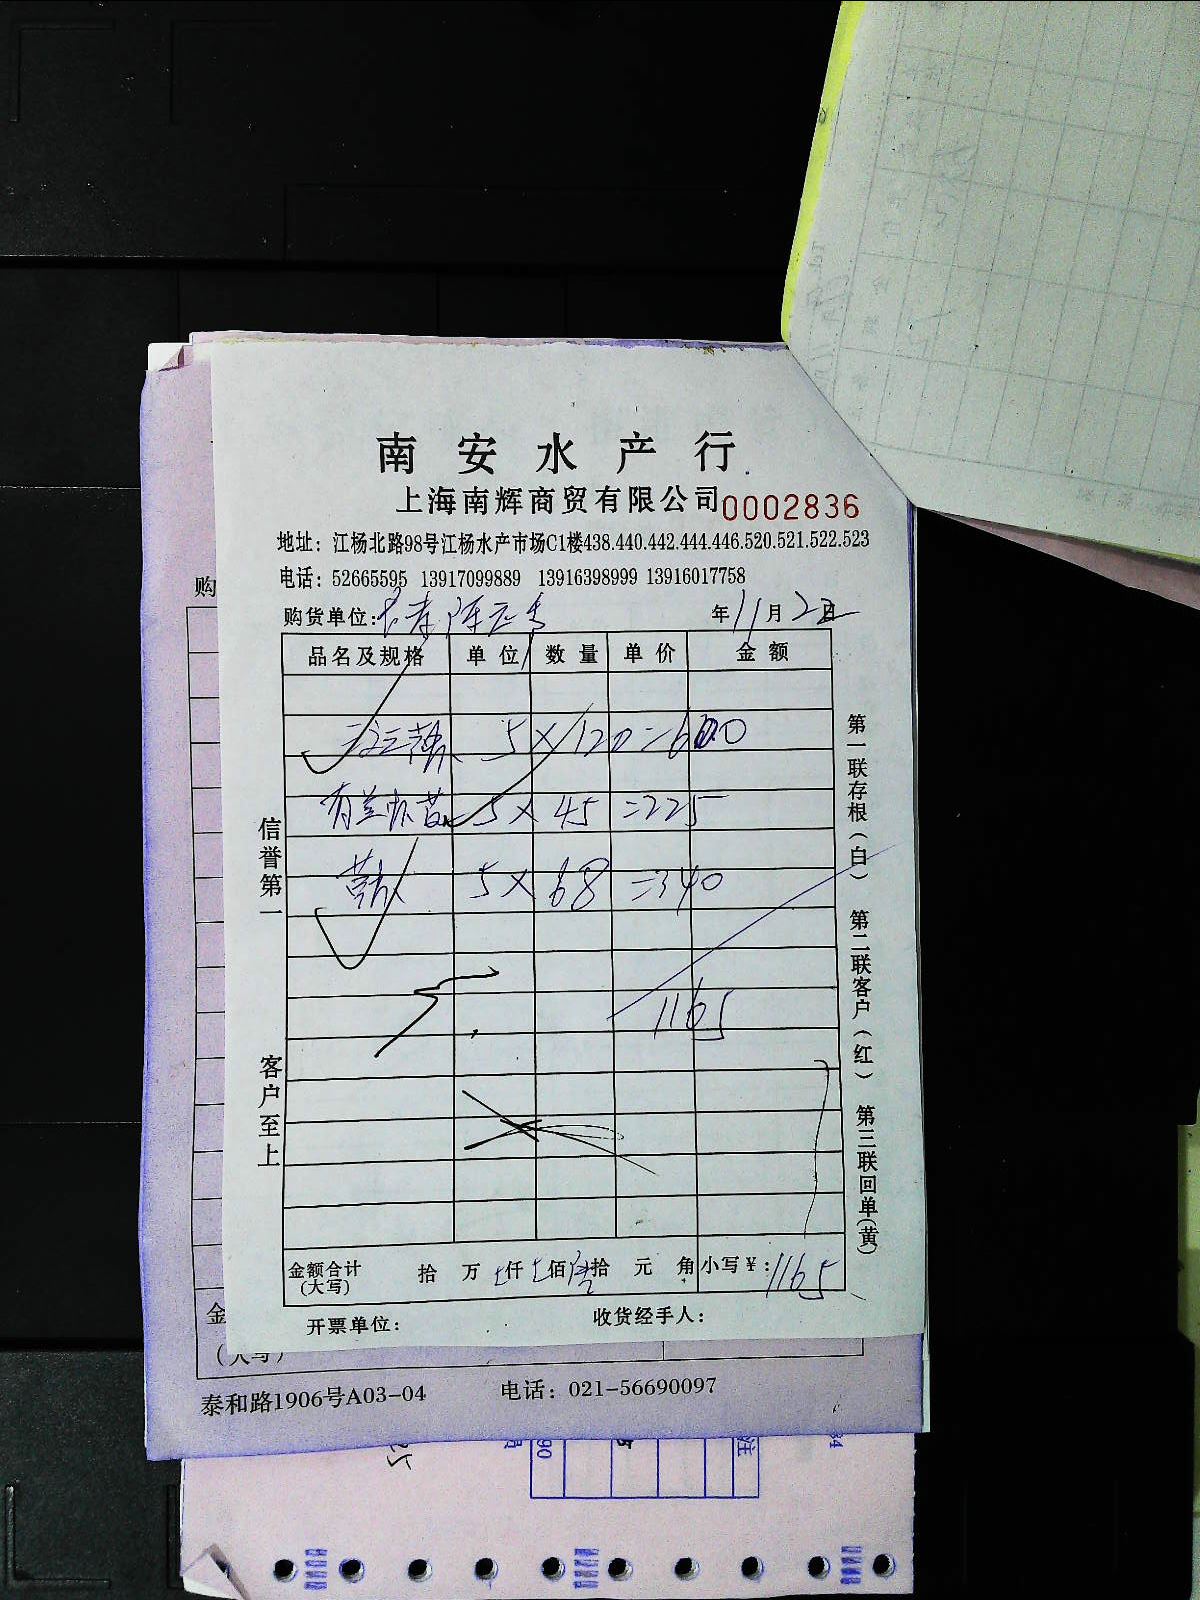 南安水产行
上海南辉商贸有限公司 0002836
地址：江杨北路98号江杨水产市场C1楼438.440.442.444.446.520.521.522.523
电话：52665595 13917099889 13916398999 13916017758
购货单位： 年11月2日
品名及规格 单位 数量 单价 金额
5×120=600
5×45=225
5×68=340
1165
金额合计（大写） 拾 万 仟 佰 拾 元 角 小写￥：1165
开票单位： 收货经手人：
信誉第一 客户至上
第一联存根（白） 第二联客户（红） 第三联回单（黄）
购
金
（大写）
泰和路1906号A03-04 电话：021-56690097